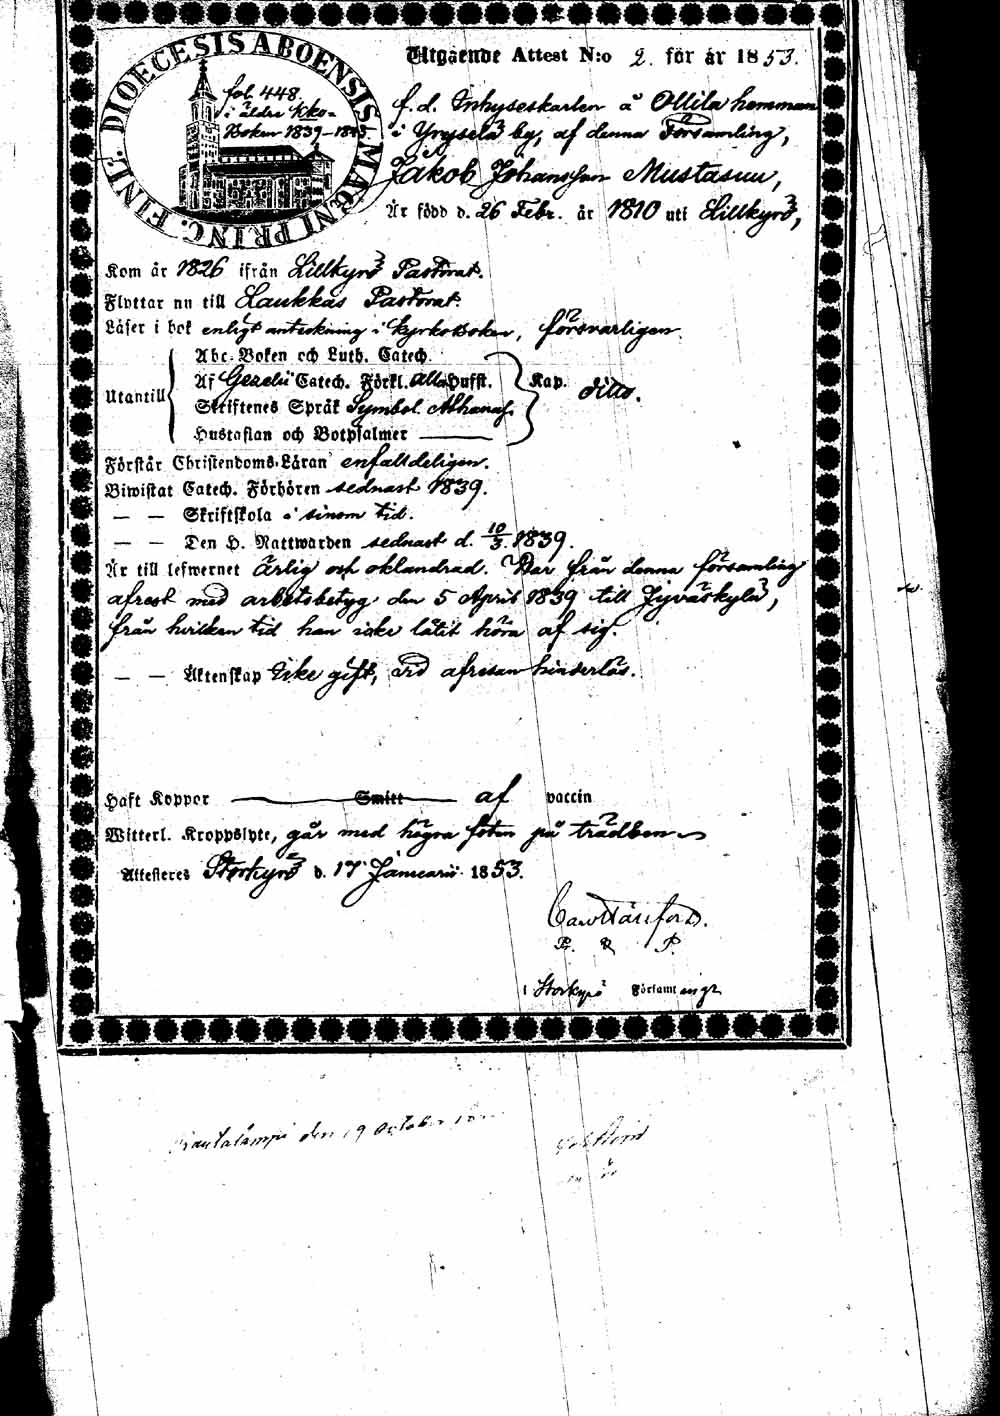 DIOECESIS ABOENSIS MAGNI PRINC. FINL.
fol. 448.
i äldre Kko-
Boken 1839–1845
Utgående Attest N:o 2. för år 1853.
f. d. Inhyseskarlen å Ollila hemman
i Yryselä by, af denna Församling,
Jakob Johansson Mustasuu,
Är född d. 26 Febr. år 1810 uti Lillkyrö,
Kom år 1826 ifrån Lillkyrö Pastorat.
Flyttar nu till Laukkas Pastorat.
Läser i bok enligt anteckning i Kyrkoboken, försvarligen.
Abc-Boken och Luth. Catech.
Af Gezelii Catech. Förkl. Alla Hufst.
Utantill Kap. ditto.
Skriftenes Språk Symbol. Athanas.
Hustaflan och Botpsalmer ———
Förstår Christendoms-Läran enfaldeligen.
Biwistat Catech. Förhören sednast 1839.
— — Skriftskola i sinom tid.
— — Den H. Nattwarden sednast d. 10/3 1839.
Är till lefwernet Ärlig och oklandrad. Har från denna församling
afrest med arbetsbetyg den 5 April 1839 till Jyväskylä,
från hvilken tid han icke låtit höra af sig.
— — Äktenskap Icke gift, vid afresan hinderlös.
Haft Koppor ——— Smitt ——— af vaccin
Witterl. Kroppslyte, går med högra foten på trädben
Attesteras Storkyrö d. 17 Januarii 1853.
P. P.
i Storkyrö Församlingar
Rautalampi den 19 October